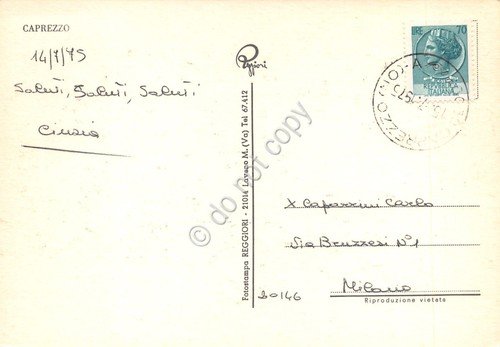 CAPREZZO
14/7/75
Saluti, Saluti, Saluti
Cinzia
Reggiori
Fotostampa REGGIORI - 21014 Laveno M. (Va) Tel 67.412
do not copy
LIRE 70
POSTE
ITALIANE
CAPREZZO (NO)
X Caparrini Carlo
Via Bruzzesi N°1
20146
Milano
Riproduzione vietata